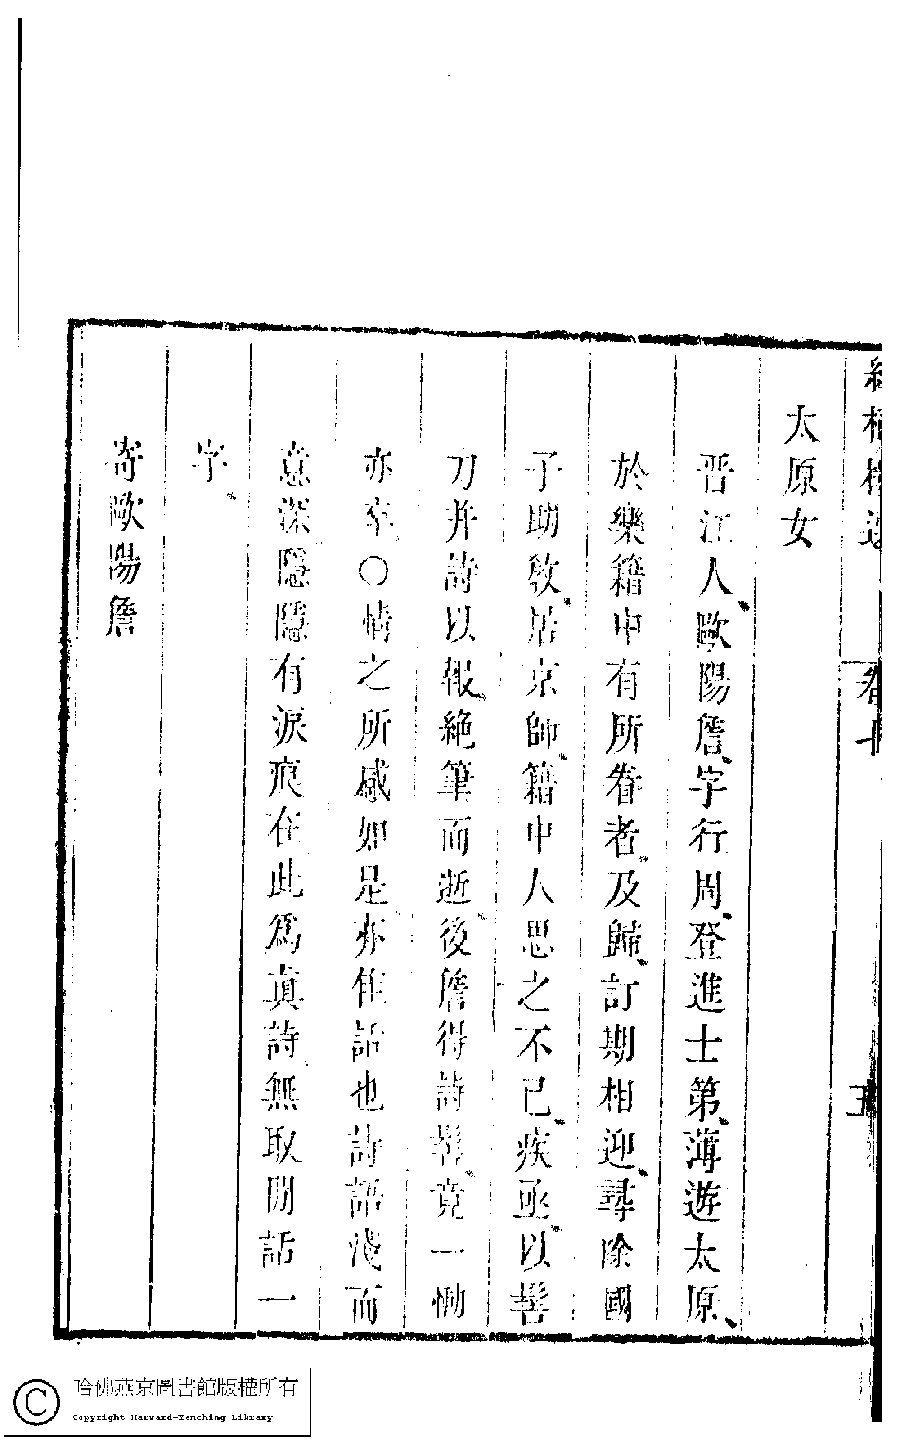 太原女
晋江人歐陽詹字行周登進士第薄遊太原
於樂籍中有所眷者及歸訂期相迎尋除國
子助敎居京師籍中人思之不已疾亟以髻
刀并詩以報絶筆而逝後詹得詩髻竟一慟
亦卒○情之所感如是亦佳話也詩語淺而
意深隱隱有淚痕在此爲真詩無取閒話一
字
寄歐陽詹
哈佛燕京圖書館版權所有
Copyright Harvard-Yenching Library